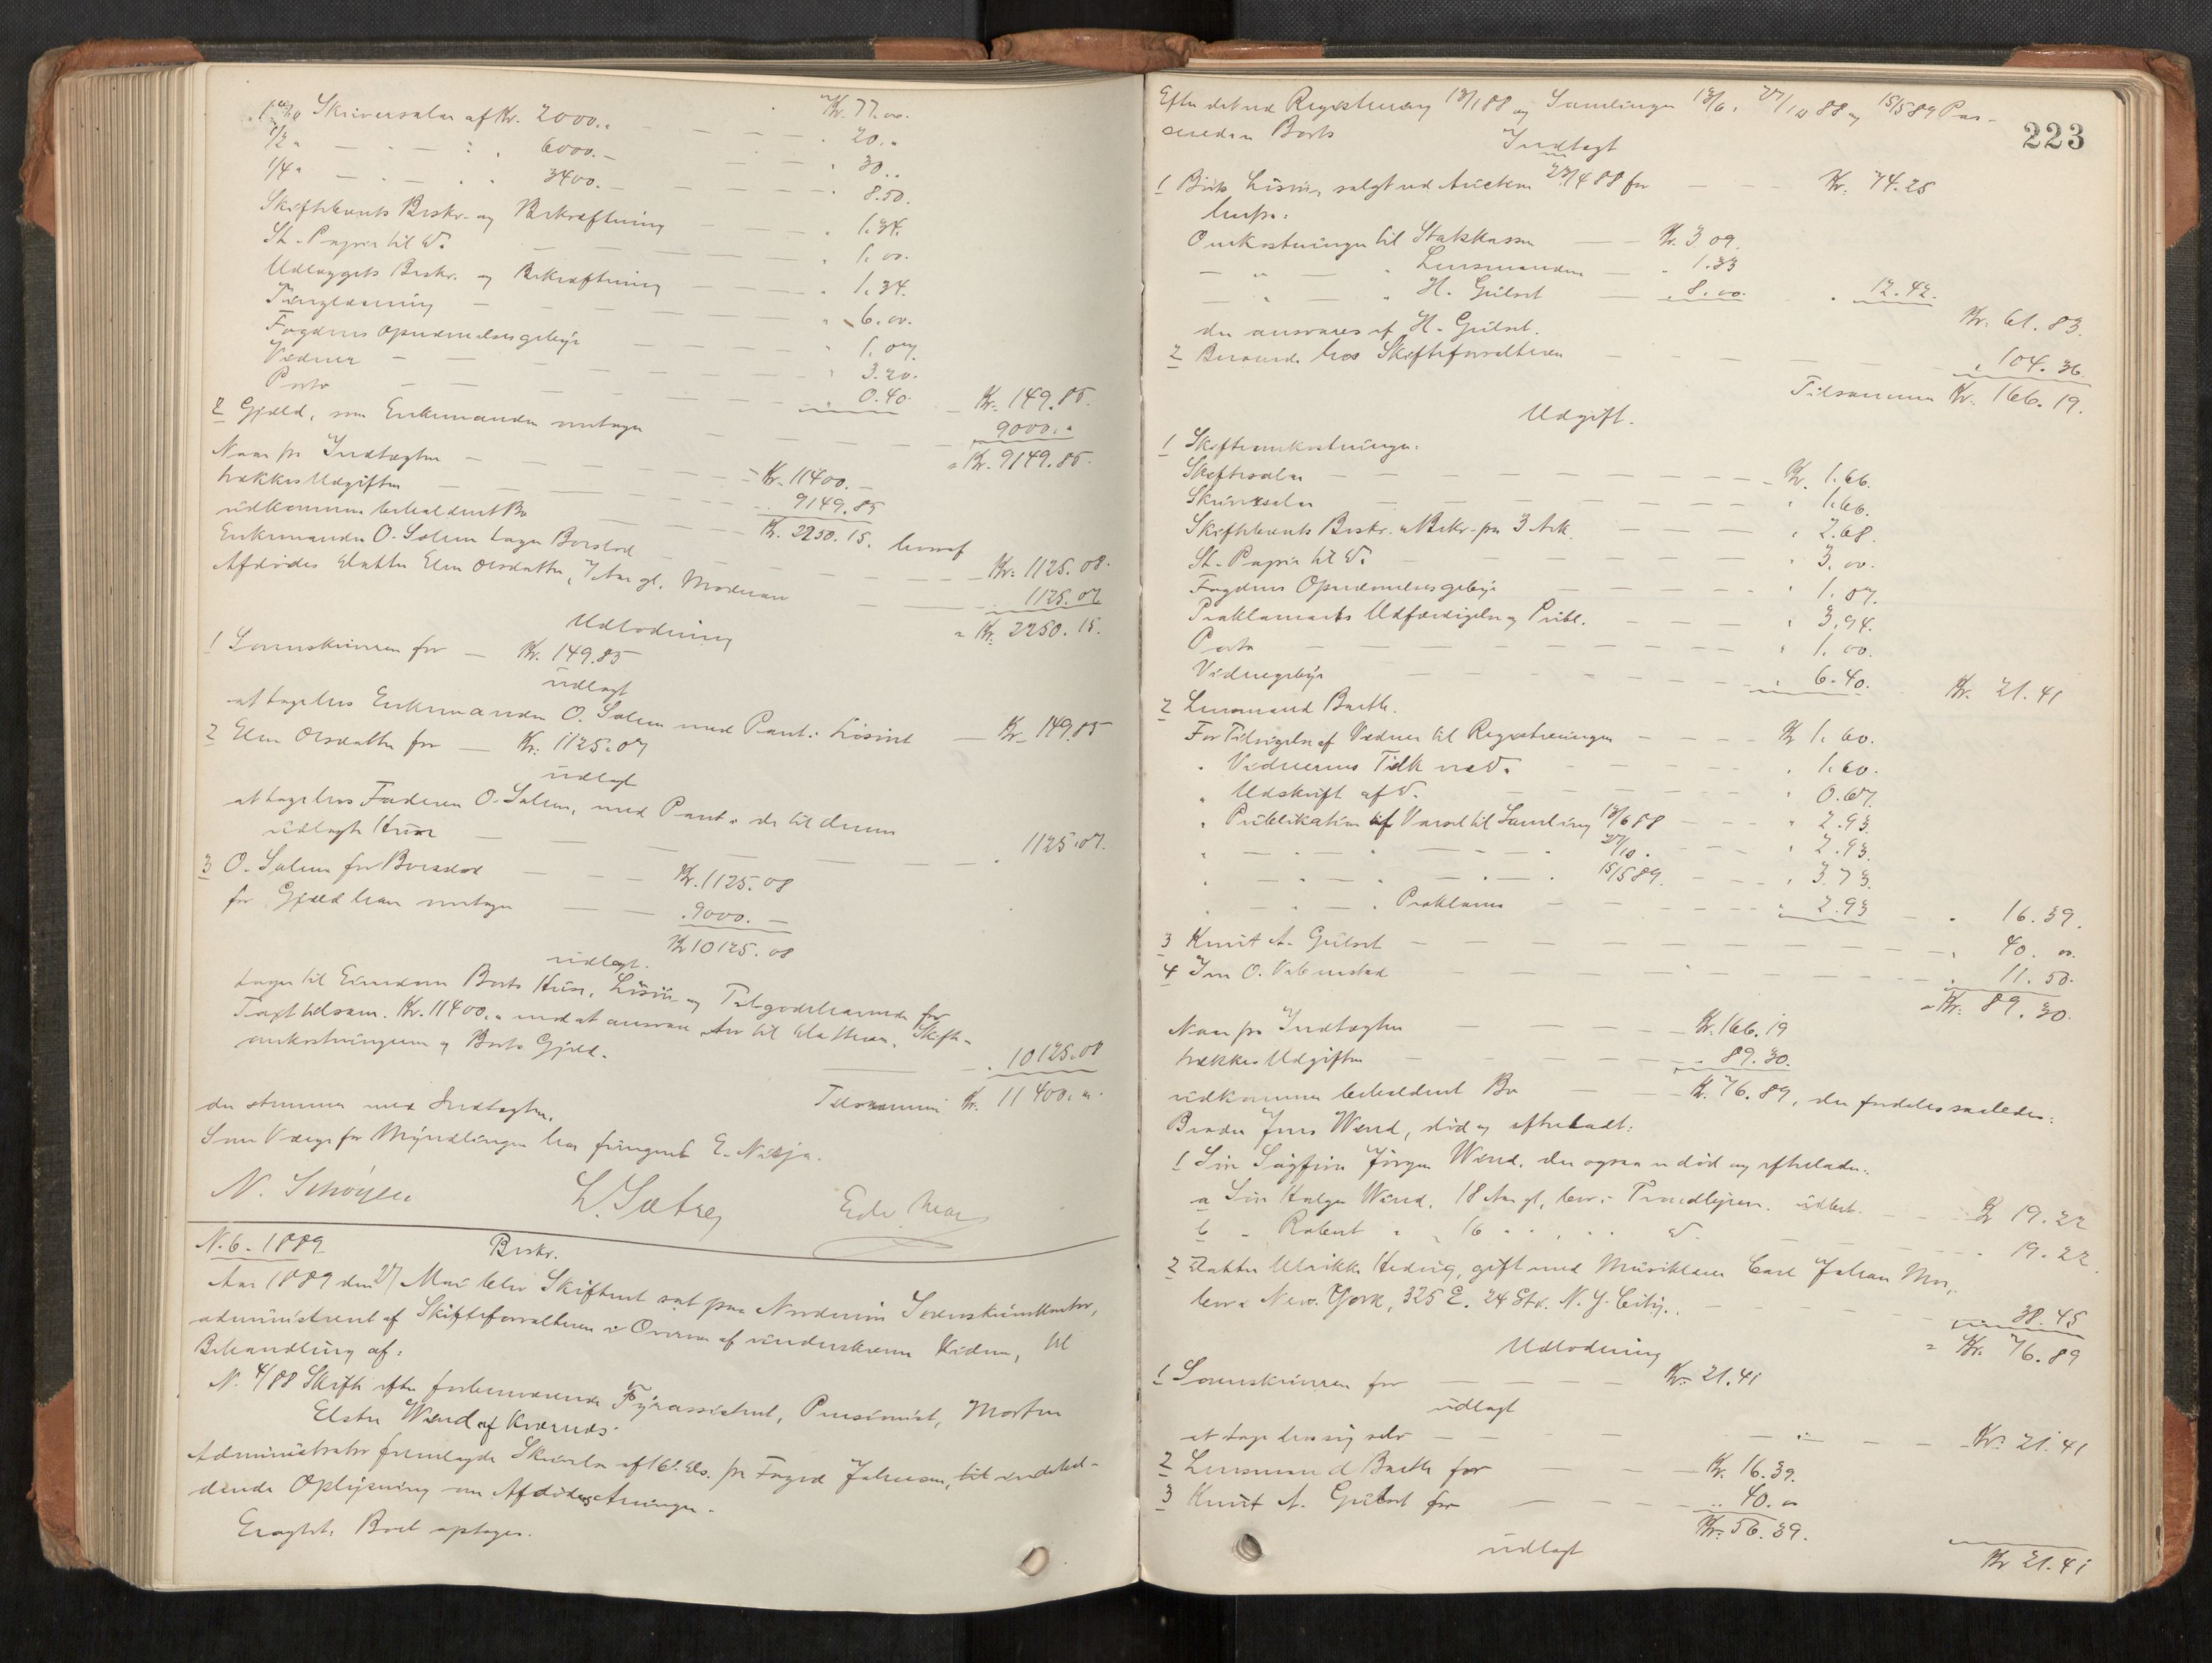 Kr. 77.00.
1% Skriversalær af Kr. 2000.. — 20.„
1/2 " — 6000.— — 30..
1/4 " — 3400.— — 8.50.
Skiftebrevets Beskr. og Bekræftning — 1.34.
St. Papir til D. — 1.00.
Udlæggets Beskr. og Bekræftning — 1.34.
Tinglæsning — 6.00.
Fogdens Opnævnelsesgebyr — 1.07.
Vidner — 3.20.
Porto — 0.40. — Kr. 149.85.
2 Gjæld, som Enkemanden overtager — 9000.„
= Kr. 9149.85.
Naar fra Indtægten — Kr. 11400.—
trækkes Udgiften — 9149.85
udkommer beholdent Bo — Kr. 2250.15. hvoraf
Enkemanden O. Solem tager Boeslod — Kr. 1125.08.
Afdødes Datter Elen Olsdatter, 7 Aar gl. Mødrenarv — 1125.07
= Kr. 2250.15.
Udlodning
1 Sorenskriveren for — Kr. 149.85
udlagt
at tage hos Enkemanden O. Solem med Pant i Løsøret — Kr. 149.85
2 Elen Olsdatter for — Kr. 1125.07
udlagt
at tage hos Faderen O. Solem, med Pant i de til denne
udlagte Huse — 1125.07.
3 O. Solem for Boeslod — Kr. 1125.08
for Gjæld han overtager — 9000.—
Kr 10125.08
udlagt.
tager til Eiendom Boets Huse, Løsøre og Tilgodehavende for
Taxt tilsam. Kr. 11400.„ mod at ansvare Arv til Datteren, Skifte-
omkostningerne og Boets Gjæld. — 10125.08
Tilsammen Kr. 11400.„.
der stemmer med Indtægten.
Som Værge for Myndlingen har fungeret E. Nesja.
N. Schøyen L. Sætre
N. 6. 1889 Beskr.
Aar 1889 den 27 Mai blev Skifteret sat paa Nordmøre Sorenskriverkontor,
administreret af Skifteforvalteren i Overvær af underskrevne Vidner, til
Behandling af:
N. 4/88 Skifte efter forhenværende Fyrassistent, Pensionist, Morten
Elster Wind af Kværnes.
Administrator fremlagde Skrivelse af 16. ds. fra Foged Johnsen, til indehol-
dende Oplysning om Afdødes Arvinger.
Eragtet: Boet optages.
223
Efter det ved Registrering 18/1 88 og Samlinger 18/6, 27/10 88 og 15/5 89 Pas-
serede er Boets
Indtægt
1 Boets Løsøre, solgt ved Auction 27/4 88 for — Kr. 74.25
herfra:
Omkostninger til Statskassen — Kr. 3.09.
— " — Lensmanden — 1.33
" — " H. Gulset — 8.00. — 12.42.
Kr. 61.83.
der ansvares af H. Gulset.
2 Beroende hos Skifteforvalteren — 104.36.
Tilsammen Kr. 166.19.
Udgift.
1 Skifteomkostninger:
Skiftesalær — Kr. 1.66.
Skriversalær — 1.66.
Skiftebrevets Beskr. & Bekr. paa 3 Ark — 2.68.
St. Papir til D. — 3.00.
Fogdens Opnævnelsesgebyr — 1.07.
Proklamaets Udfærdigelse og Publ. — 3.94.
Porto — 1.00.
Vidnegebyr — 6.40. Kr. 21.41
2 Lensmand Barth.
For Tilsigelse af Vidner til Registreringen — Kr 1.60.
" Vidnernes Tidk ved D. — 1.60.
" Udskrift af D. — 0.67.
" Publikation af Varsel til Samling 18/6 88 — 2.93.
" — " — 27/10. — 2.93.
" — " — 15/5 89. — 3.73.
" — " Proklama — 2.93 — 16.39.
3 Knut A. Gulset — 40.00.
4 Iver O. — 11.50.
= Kr. 89.30.
Naar fra Indtægten — Kr. 166.19
trækkes Udgiften — 89.30.
udkommer beholdent Bo — Kr. 76.89, der fordeles saaledes:
Broder Jens Wind, død og efterladt:
1 Søn Sigfrin Jørgen Wind, der ogsaa er død og efterlader:
a Søn Halger Wind, 18 Aar gl, bor i Trondhjem. udbet. — Kr 19.22
b " Robert " 16 " " D. — 19.22.
2 Datter Ulrikke Hedvig, gift med Musiklærer Carl Johan Moe,
bor i New York, 325 E. 24 Str. N. Y. City. — 38.45
= Kr. 76.89
Udlodning
1 Sorenskriveren for — Kr. 21.41
udlagt
at tage hos sig selv — Kr. 21.41
2 Lensmand Barth for — Kr. 16.39.
3 Knut A. Gulset for — 40.00
Kr. 56.39.
udlagt
Kr 21.41